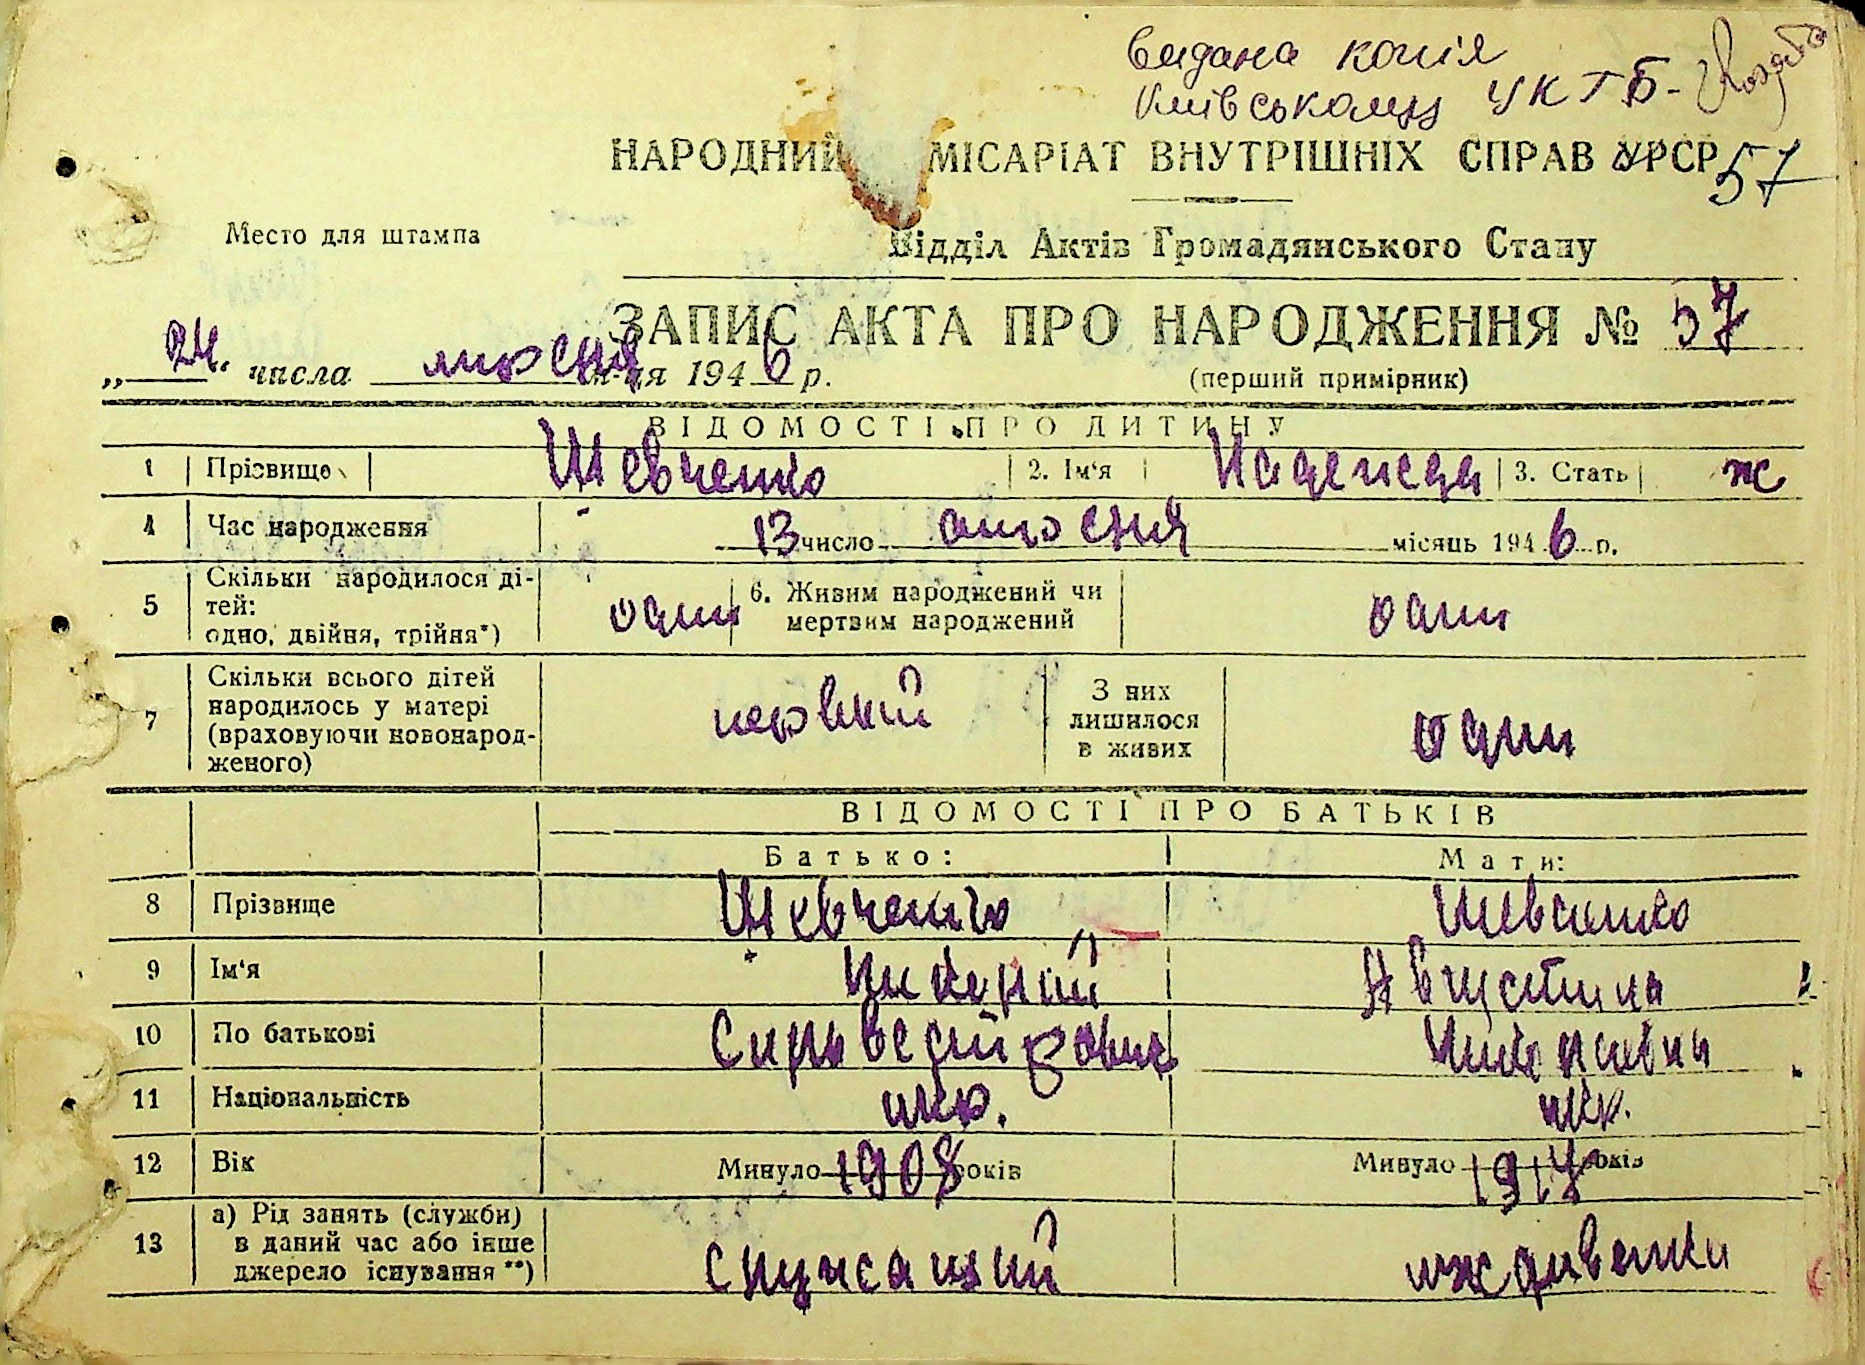 видана копія
Київському УКТБ-
НАРОДНИЙ МІСАРІАТ ВНУТРІШНІХ СПРАВ УРСР 57
Место для штампа
Відділ Актів Громадянського Стану
ЗАПИС АКТА ПРО НАРОДЖЕННЯ № 57
„24." числа м-ця 1946 р. (перший примірник)
ВІДОМОСТІ ПРО ДИТИНУ
1 Прізвище Шевченко 2. Ім'я Надежда 3. Стать ж
4 Час народження 13 число місяць 1946 р.
5 Скільки народилося ді-
тей:
одно, двійня, трійня*) один 6. Живим народжений чи
мертвим народжений один
7 Скільки всього дітей
народилось у матері
(враховуючи новонарод-
женого) первий З них
лишилося
в живих один
ВІДОМОСТІ ПРО БАТЬКІВ
Батько: Мати:
8 Прізвище Шевченко Шевченко
9 Ім'я Августина
10 По батькові
11 Національність укр. укр.
12 Вік Минуло 1908 років Минуло 1917 років
13 а) Рід занять (служби)
в даний час або інше
джерело існування**) служащий